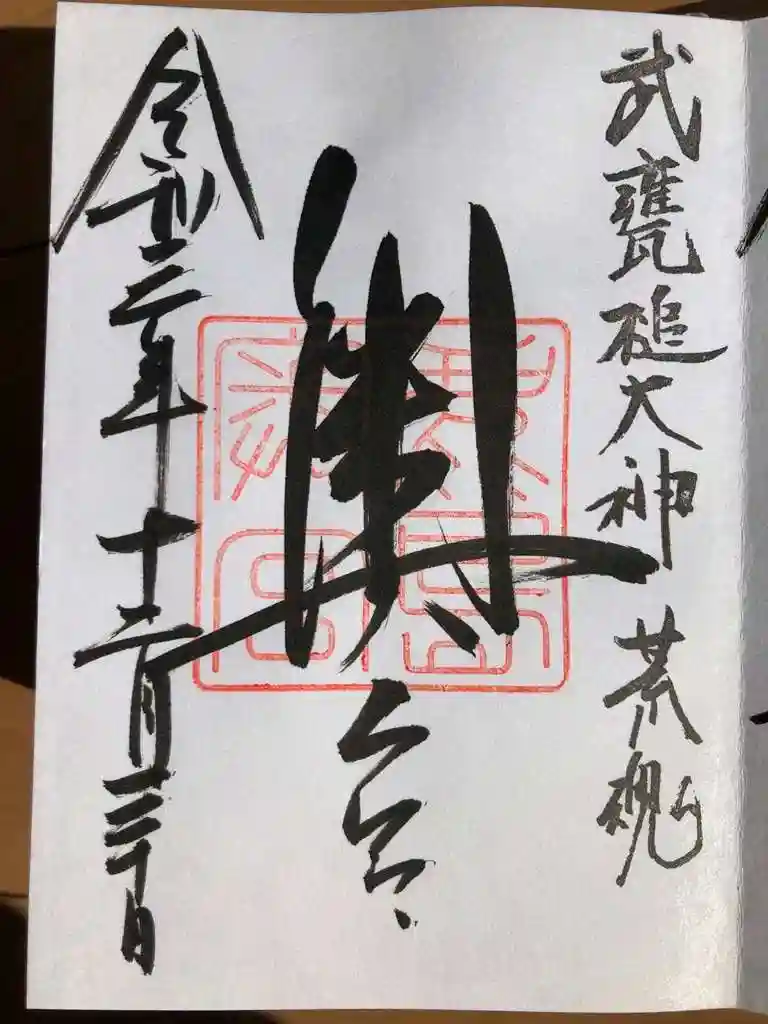 武甕槌大神 荒魂
奥宮
令和二年十二月三十日